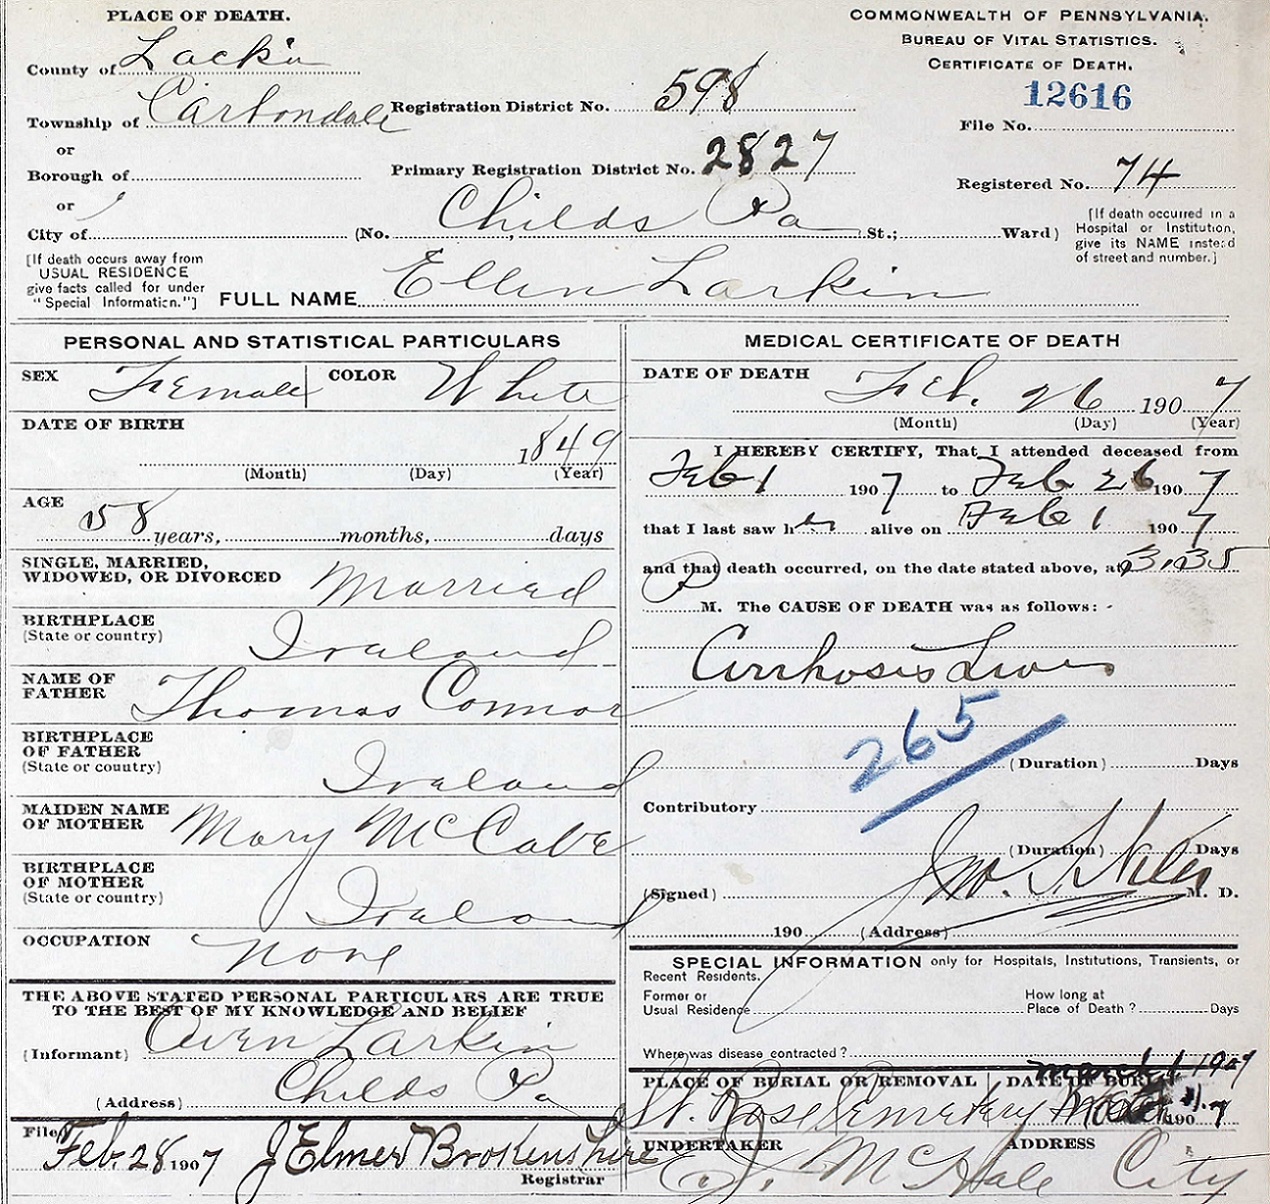 PLACE OF DEATH.
County of Lacka
Township of Carbondale
or
Borough of
or
City of
(No. Childs Pa St.; Ward)
COMMONWEALTH OF PENNSYLVANIA.
BUREAU OF VITAL STATISTICS.
CERTIFICATE OF DEATH.
12616
File No.
Registration District No. 598
Primary Registration District No. 2827
Registered No. 74
[If death occurred in a
Hospital or Institution,
give its NAME instead
of street and number.]
[If death occurs away from
USUAL RESIDENCE
give facts called for under
"Special Information."]
FULL NAME Ellen Larkin
PERSONAL AND STATISTICAL PARTICULARS
SEX Female COLOR White
DATE OF BIRTH
1849
(Month) (Day) (Year)
AGE
58 years, months, days
SINGLE, MARRIED,
WIDOWED, OR DIVORCED Married
BIRTHPLACE
(State or country) Ireland
NAME OF
FATHER Thomas Connor
BIRTHPLACE
OF FATHER
(State or country) Ireland
MAIDEN NAME
OF MOTHER Mary McCabe
BIRTHPLACE
OF MOTHER
(State or country) Ireland
OCCUPATION none
THE ABOVE STATED PERSONAL PARTICULARS ARE TRUE
TO THE BEST OF MY KNOWLEDGE AND BELIEF
(Informant) Owen Larkin
(Address) Childs Pa
Filed Feb. 28 1907 J Elmer Brokenshire
Registrar
MEDICAL CERTIFICATE OF DEATH
DATE OF DEATH
Feb. 26 1907
(Month) (Day) (Year)
I HEREBY CERTIFY, That I attended deceased from
Feb 1 1907 to Feb 26 1907
that I last saw her alive on Feb 1 1907
and that death occurred, on the date stated above, at 3.35
P M. The CAUSE OF DEATH was as follows:
Cirrhosis Liver
265
(Duration) Days
Contributory
(Duration) Days
(Signed) Jno. M. D.
190 (Address)
SPECIAL INFORMATION only for Hospitals, Institutions, Transients, or
Recent Residents.
Former or
Usual Residence
How long at
Place of Death? Days
Where was disease contracted?
March 1 1907
PLACE OF BURIAL OR REMOVAL DATE OF BURIAL
St. Rose Cemetery 1907
UNDERTAKER ADDRESS
J. McHale City